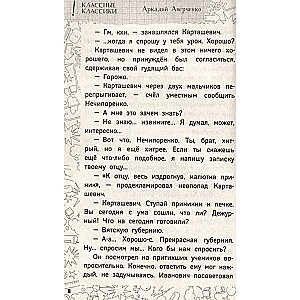 КЛАССНЫЕ
КЛАССИКИ
Аркадий Аверченко
— Гм, кхи, — закашлялся Карташевич.
— ...когда я спрошу у тебя урок. Хорошо?
Карташевич не видел в этом ничего хо-
рошего, но принуждён был согласиться,
сдерживая свой гудящий бас:
— Горожо.
— Карташевич через двух мальчиков пе-
репрыгивает, — счёл уместным сообщить
Нечипоренко.
— А мне это зачем знать?
— Не знаю, извините... Я, может, может,
интересно...
— Вот что, Нечипоренко. Ты, брат, хит-
рый, но я ещё хитрее. Если ты скажешь
ещё что-либо подобное, я напишу записку
твоему отцу...
— «К отцу, весь издрогнув, малютка при-
ник», — продекламировал невпопад Карта-
шевич.
— Карташевич. Ступай приникни к печке.
Вы сегодня с ума сошли, что ли? Дежур-
ный! Что на сегодня готовили?
— Вятскую губернию.
— А-а... Хорошо-с. Прекрасная губерния.
Ну... спросим мы... Кого бы нам спросить?
Он посмотрел на притихших учеников во-
просительно. Конечно, ответить ему мог каж-
дый, не задумываясь. Иванович посоветовал